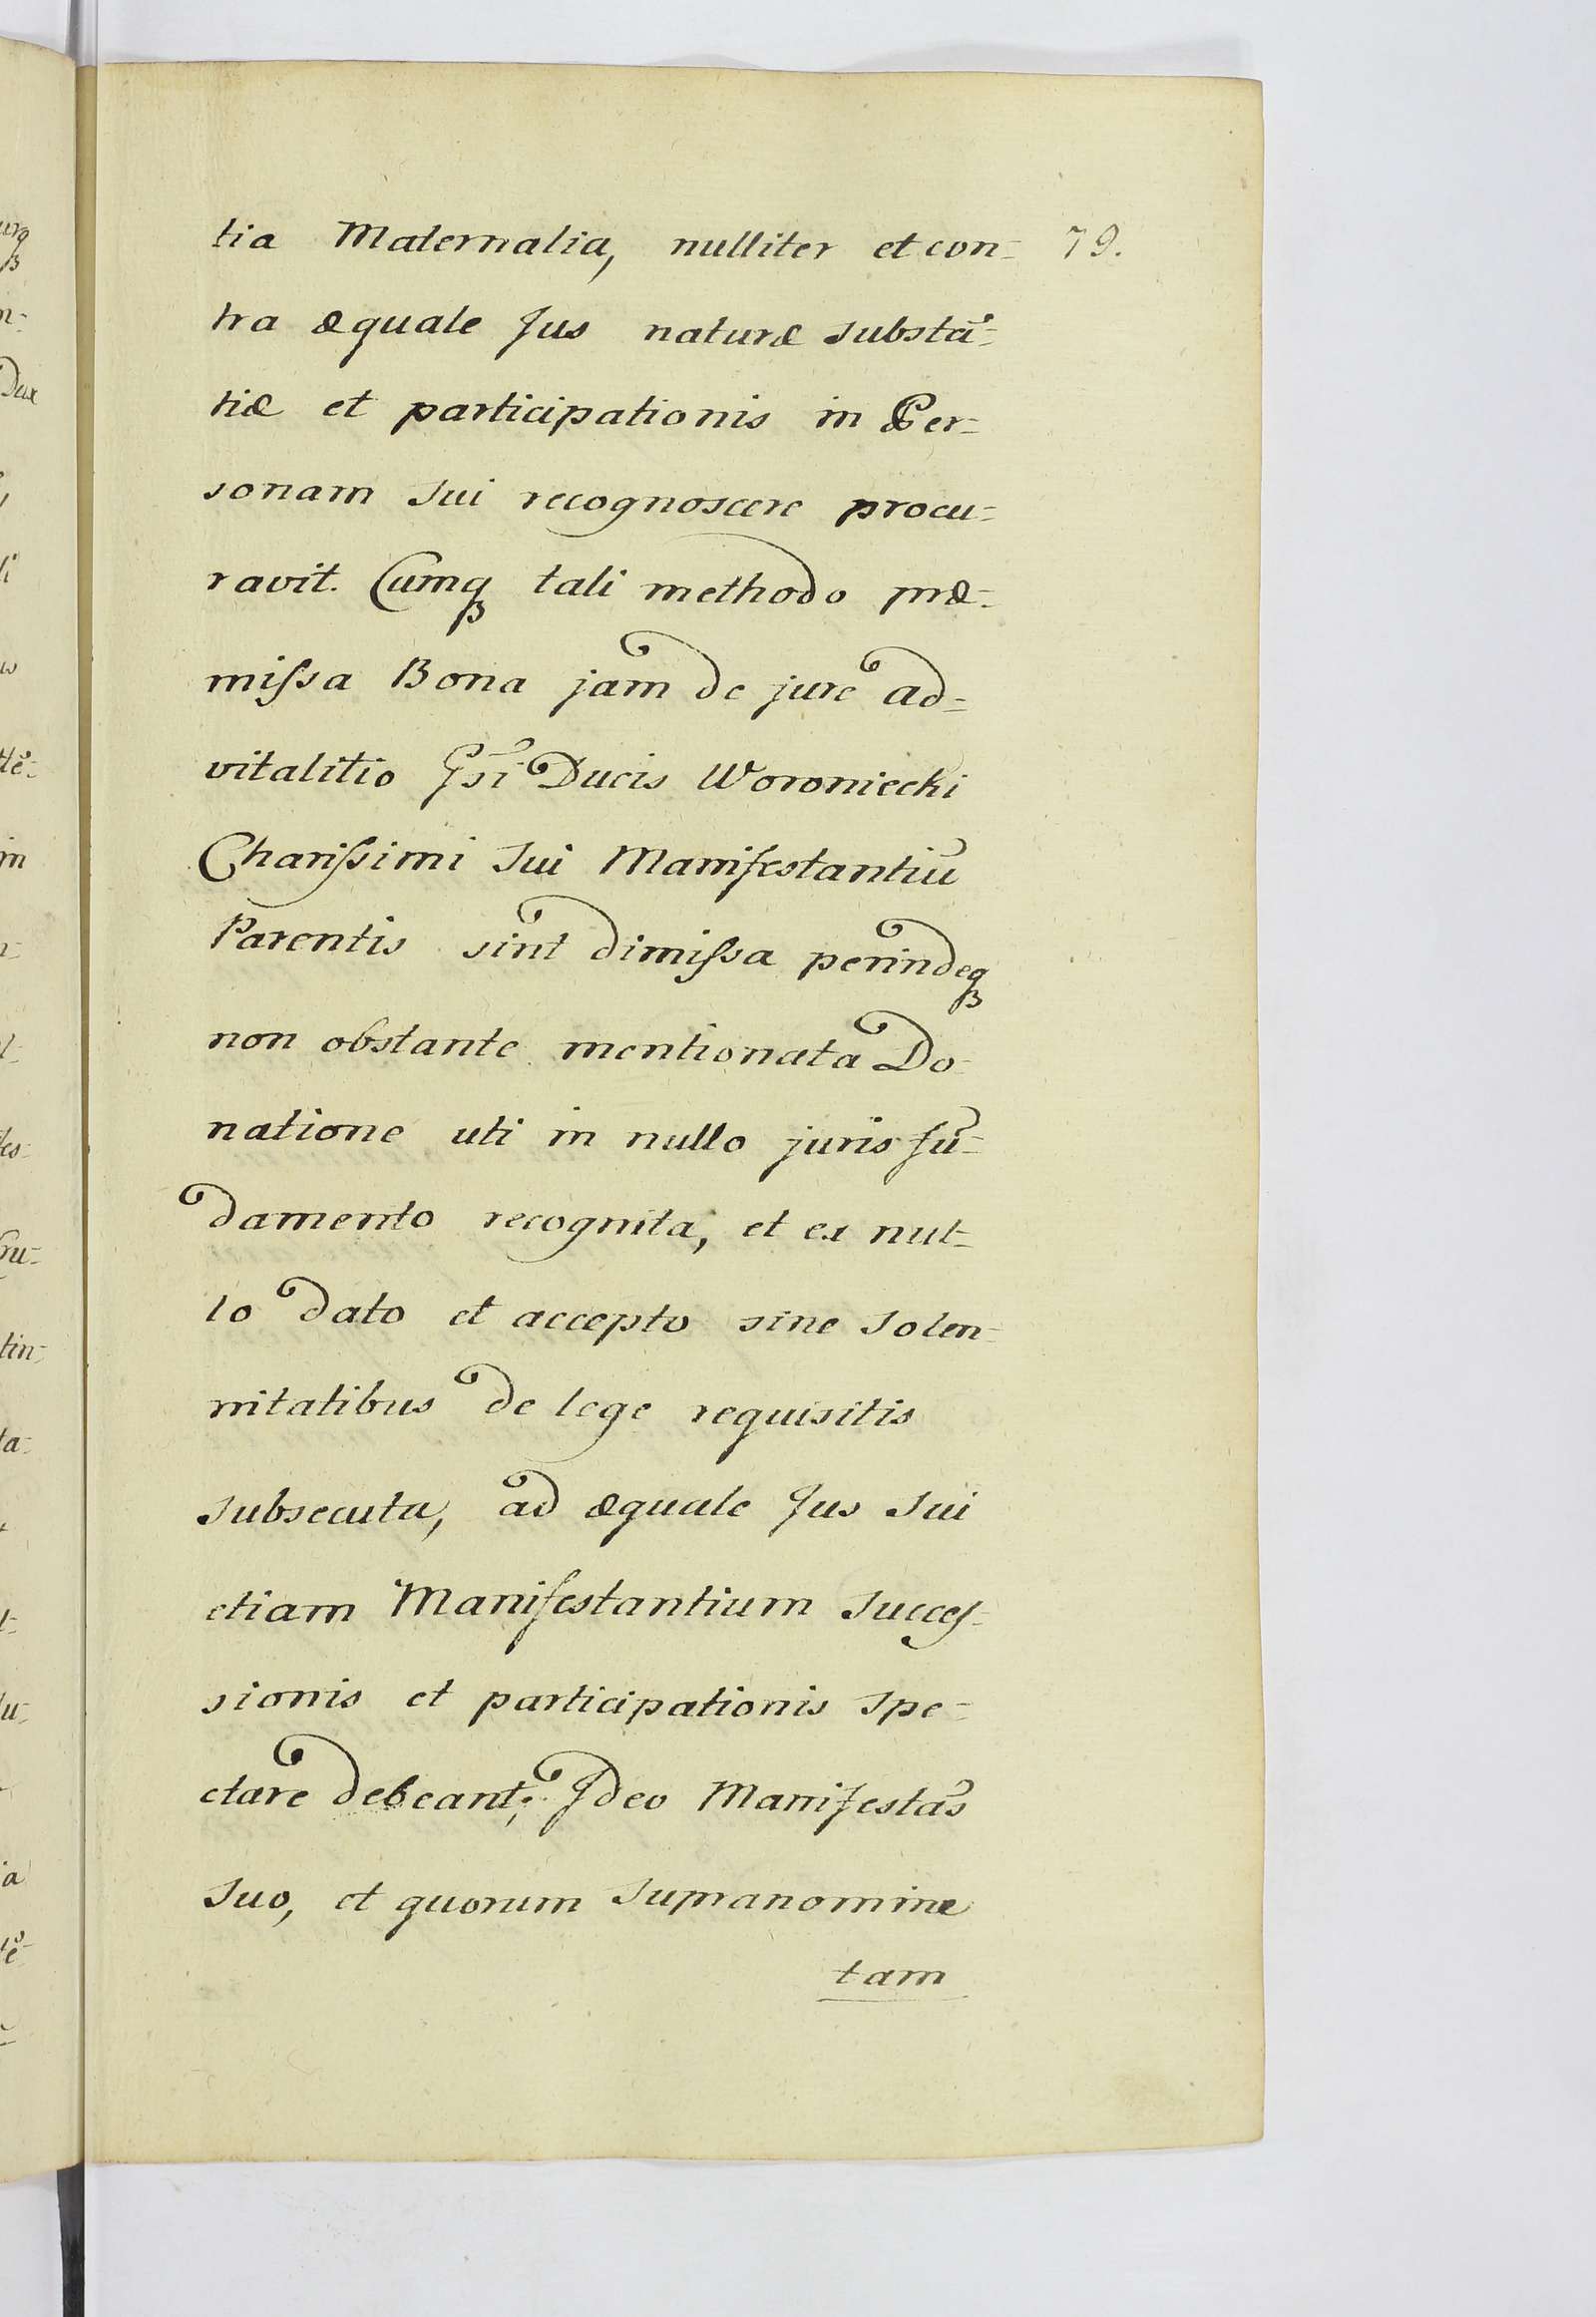 tia Maternalia, nulliter et con= 79.
tra æquale Jus naturæ substā=
tiæ et participationis in Per=
sonam sui recognoscere procu=
ravit. Cumqꝫ tali methodo præ=
miſsa Bona jam de jure ad=
vitalitio Gsi Ducis Woroniecki
Chariſsimi sui Manifestantiū
Parentis sint dimiſsa perindeqꝫ
non obstante mentionata Do=
natione uti in nullo juris fū=
damento recognita, et ex nul=
lo dato et accepto sine solen=
nitatibus de lege requisitis
subsecuta, ad æquale Jus sui
etiam Manifestantium succeſ=
sionis et participationis spe=
ctare debeant; Jdeo Manifestās
suo, et quorum supranomine
tam